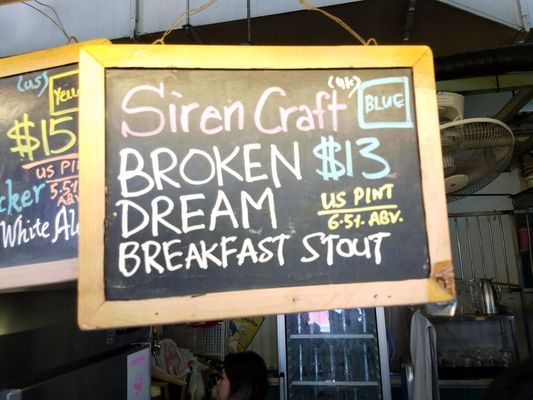 (US)
Yello
$15
US PINT
5.5%
ABV.
cker
White Al
(UK)
Siren Craft
BLUE
BROKEN $13
DREAM US PINT
6.5%. ABV.
BREAKFAST STOUT